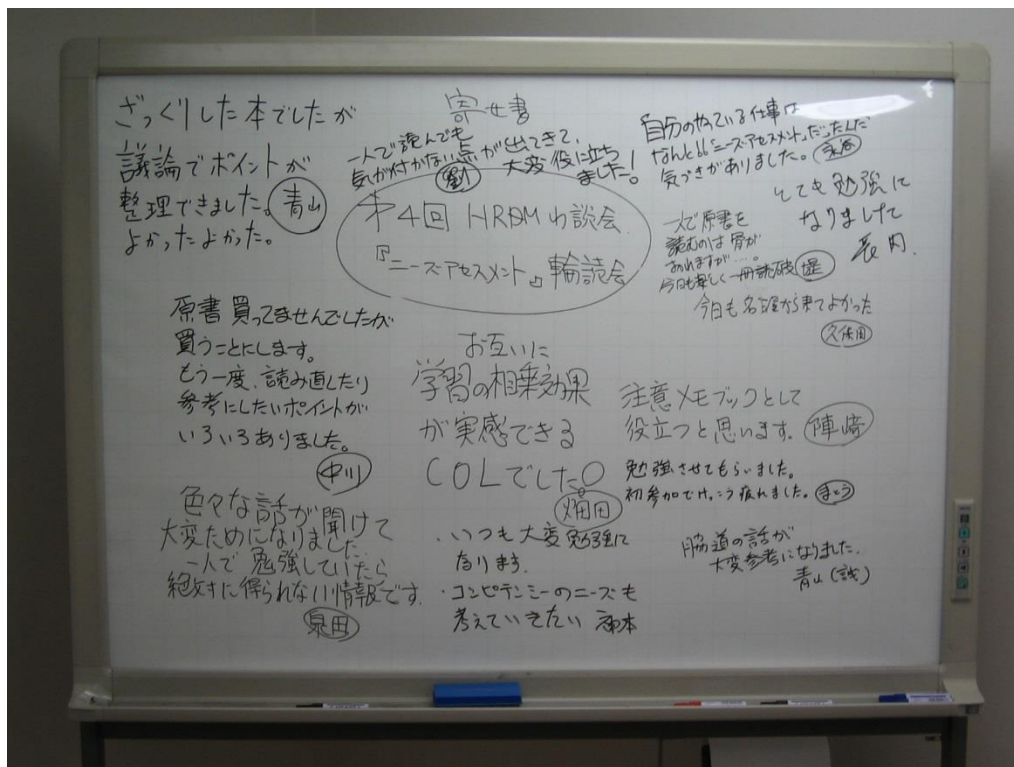 ざっくりした本でしたが
議論でポイントが
整理できました。青山
よかったよかった。
寄せ書
一人で読んでも
気が付かない点が出てきて、
大変役に立ち
ました！
劉
自分のやっている仕事は
なんと"ニーズアセスメント"だったんだ
気づきがありました。
とても勉強に
なりまして
長内.
第4回 HRDMわ談会
『ニーズ・アセスメント』輪読会
一人で原書を
読むのは骨が
おれますが…。
今日も楽しく一冊読破 堤
今日も名古屋から来てよかった
久保田
原書買ってませんでしたが
買うことにします。
もう一度、読み直したり
参考にしたいポイントが
いろいろありました。
中川
お互いに
学習の相乗効果
が実感できる
COLでした。
畑田
注意メモブックとして
役立つと思います。陣﨑
勉強させてもらいました。
初参加でけっこう疲れました。
色々な話が聞けて
大変ためになりました
一人で勉強していたら
絶対に得られない情報です.
泉田
・いつも大変勉強に
なります.
・コンピテンシーのニーズも
考えていきたい
脇道の話が
大変参考になりました.
青山(誠)